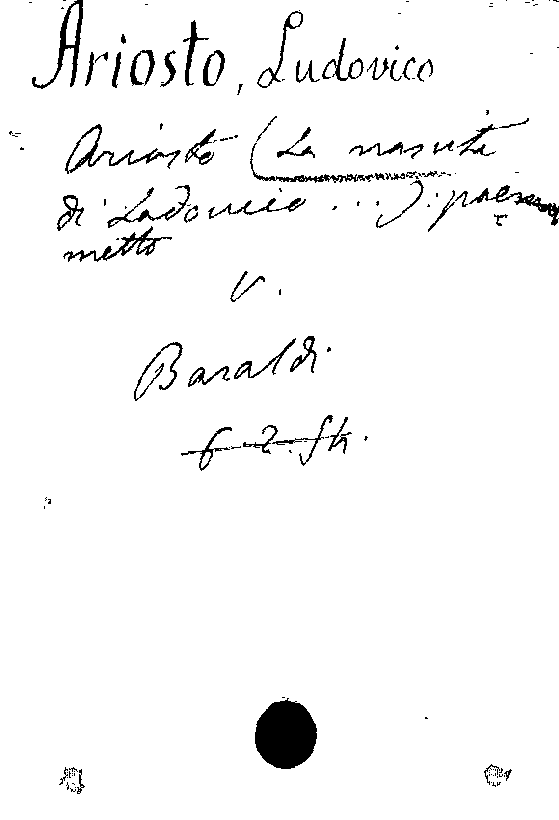 Ariosto, Ludovico
Ariosto (La nascita
di Lodovico ...): poe
metto
V.
Baraldi
6. 2.